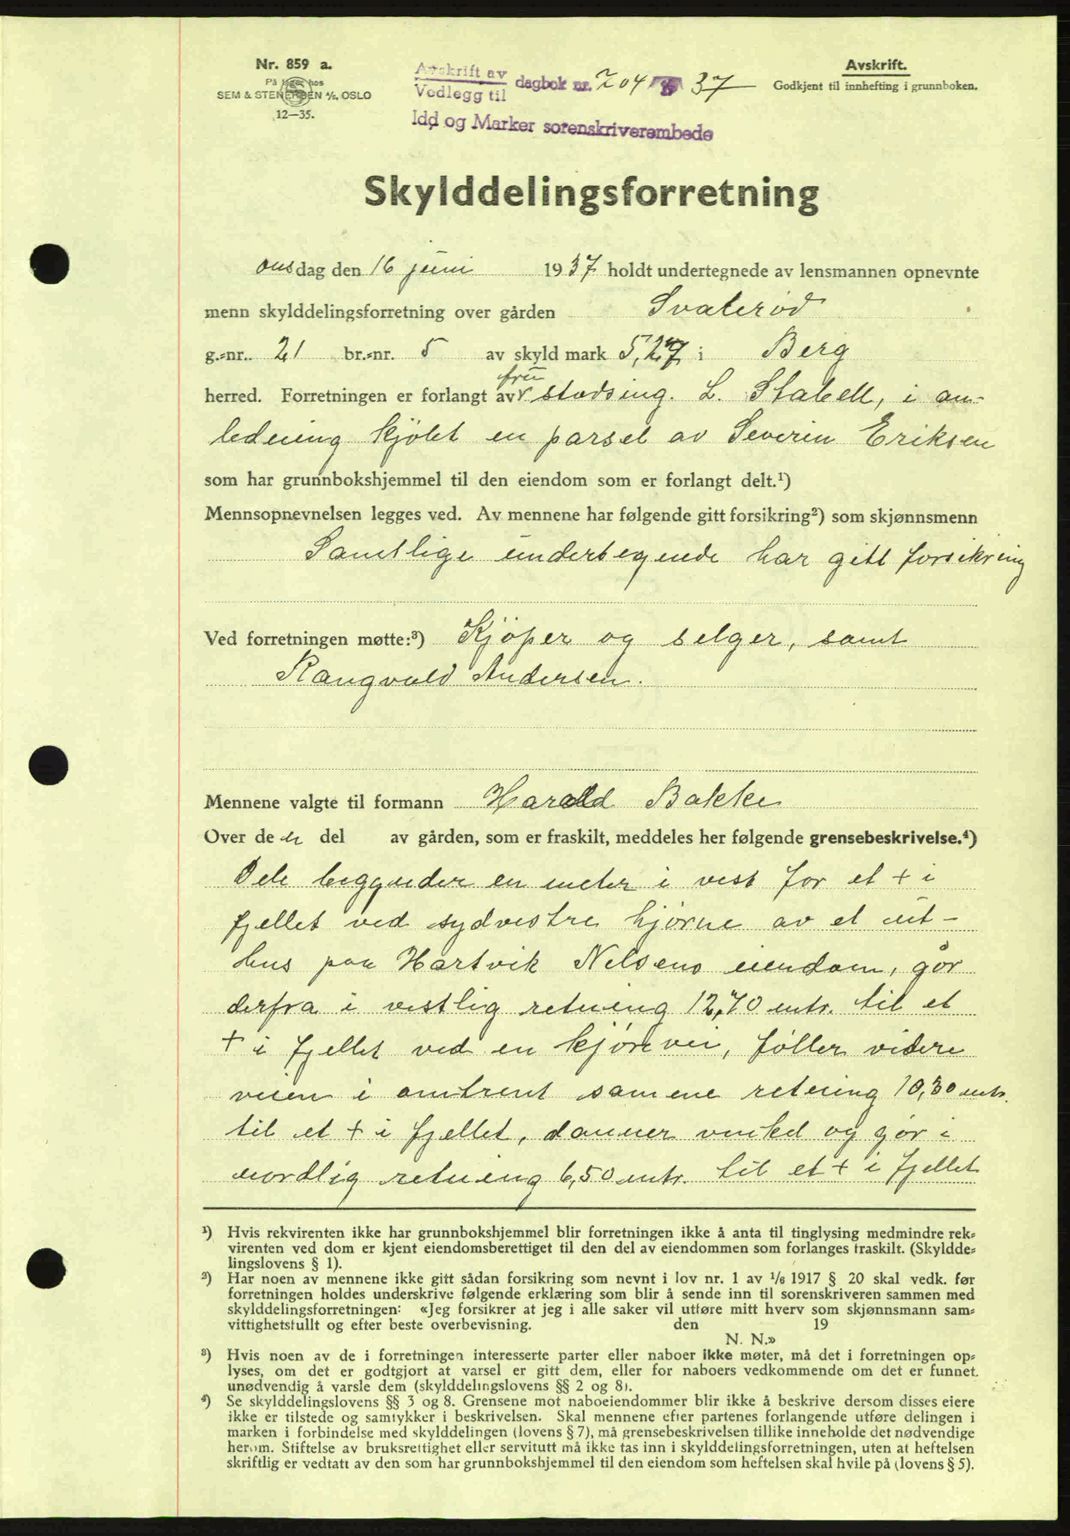 Nr. 859 a.
På lager hos
SEM & STENERSEN A/S, OSLO
12—35.
Avskrift av
Vedlegg til
dagbok nr. 704 37
Idd og Marker sorenskriverembede
Avskrift.
Godkjent til innhefting i grunnboken.
Skylddelingsforretning
onsdag den 16 juni 1937 holdt undertegnede av lensmannen opnevnte
menn skylddelingsforretning over gården Svalerød
g.-nr. 21 br.-nr. 5 av skyld mark 5,27 i Berg
fru
herred. Forretningen er forlangt av stadsing. L. Stabell, i an-
ledning kjøbt en parsel av Severin Eriksen
som har grunnbokshjemmel til den eiendom som er forlangt delt.¹)
Mennsopnevnelsen legges ved. Av mennene har følgende gitt forsikring²) som skjønnsmenn
Samtlige undertegnede har gitt forsikring
Ved forretningen møtte:³) Kjøper og selger, samt
Rangvald Andersen.
Mennene valgte til formann Harald Bakke
Over de n del av gården, som er fraskilt, meddeles her følgende grensebeskrivelse.⁴)
Dele begynder en meter i vest for et + i
fjellet ved sydvestre hjørne av et ut-
hus paa Hartvik Nelsens eiendom, går
derfra i vestlig retning 12,70 mtr. til et
+ i fjellet ved en kjørevei, føller videre
veien i omtrent samme retning 10,30 mtr.
til et + i fjellet, danner vinkel og gør i
nordlig retning 6,50 mtr. til et + i fjellet
¹) Hvis rekvirenten ikke har grunnbokshjemmel blir forretningen ikke å anta til tinglysing medmindre rek-
virenten ved dom er kjent eiendomsberettiget til den del av eiendommen som forlanges fraskilt. (Skyldde-
lingslovens § 1).
²) Har noen av mennene ikke gitt sådan forsikring som nevnt i lov nr. 1 av 1/6 1917 § 20 skal vedk. før
forretningen holdes underskrive følgende erklæring som blir å sende inn til sorenskriveren sammen med
skylddelingsforretningen: «Jeg forsikrer at jeg i alle saker vil utføre mitt hverv som skjønnsmann sam-
vittighetsfullt og efter beste overbevisning. den 19
N. N.»
³) Hvis noen av de i forretningen interesserte parter eller naboer ikke møter, må det i forretningen op-
lyses, om det er godtgjort at varsel er gitt dem, eller for naboers vedkommende om det er funnet
unødvendig å varsle dem (skylddelingslovens §§ 2 og 8).
⁴) Se skylddelingslovens §§ 3 og 8. Grensene mot naboeiendommer blir ikke å beskrive dersom disses eiere
ikke er tilstede og samtykker i beskrivelsen. Skal mennene efter partenes forlangende utføre delingen i
marken i forbindelse med skylddelingen (lovens § 7), må grensebeskrivelsen tillike inneholde det nødvendige
herom. Stiftelse av bruksrettighet eller servitutt må ikke tas inn i skylddelingsforretningen, uten at heftelsen
skriftlig er vedtatt av den som har grunnbokshjemmel til den eiendom som heftelsen skal hvile på (lovens § 5).